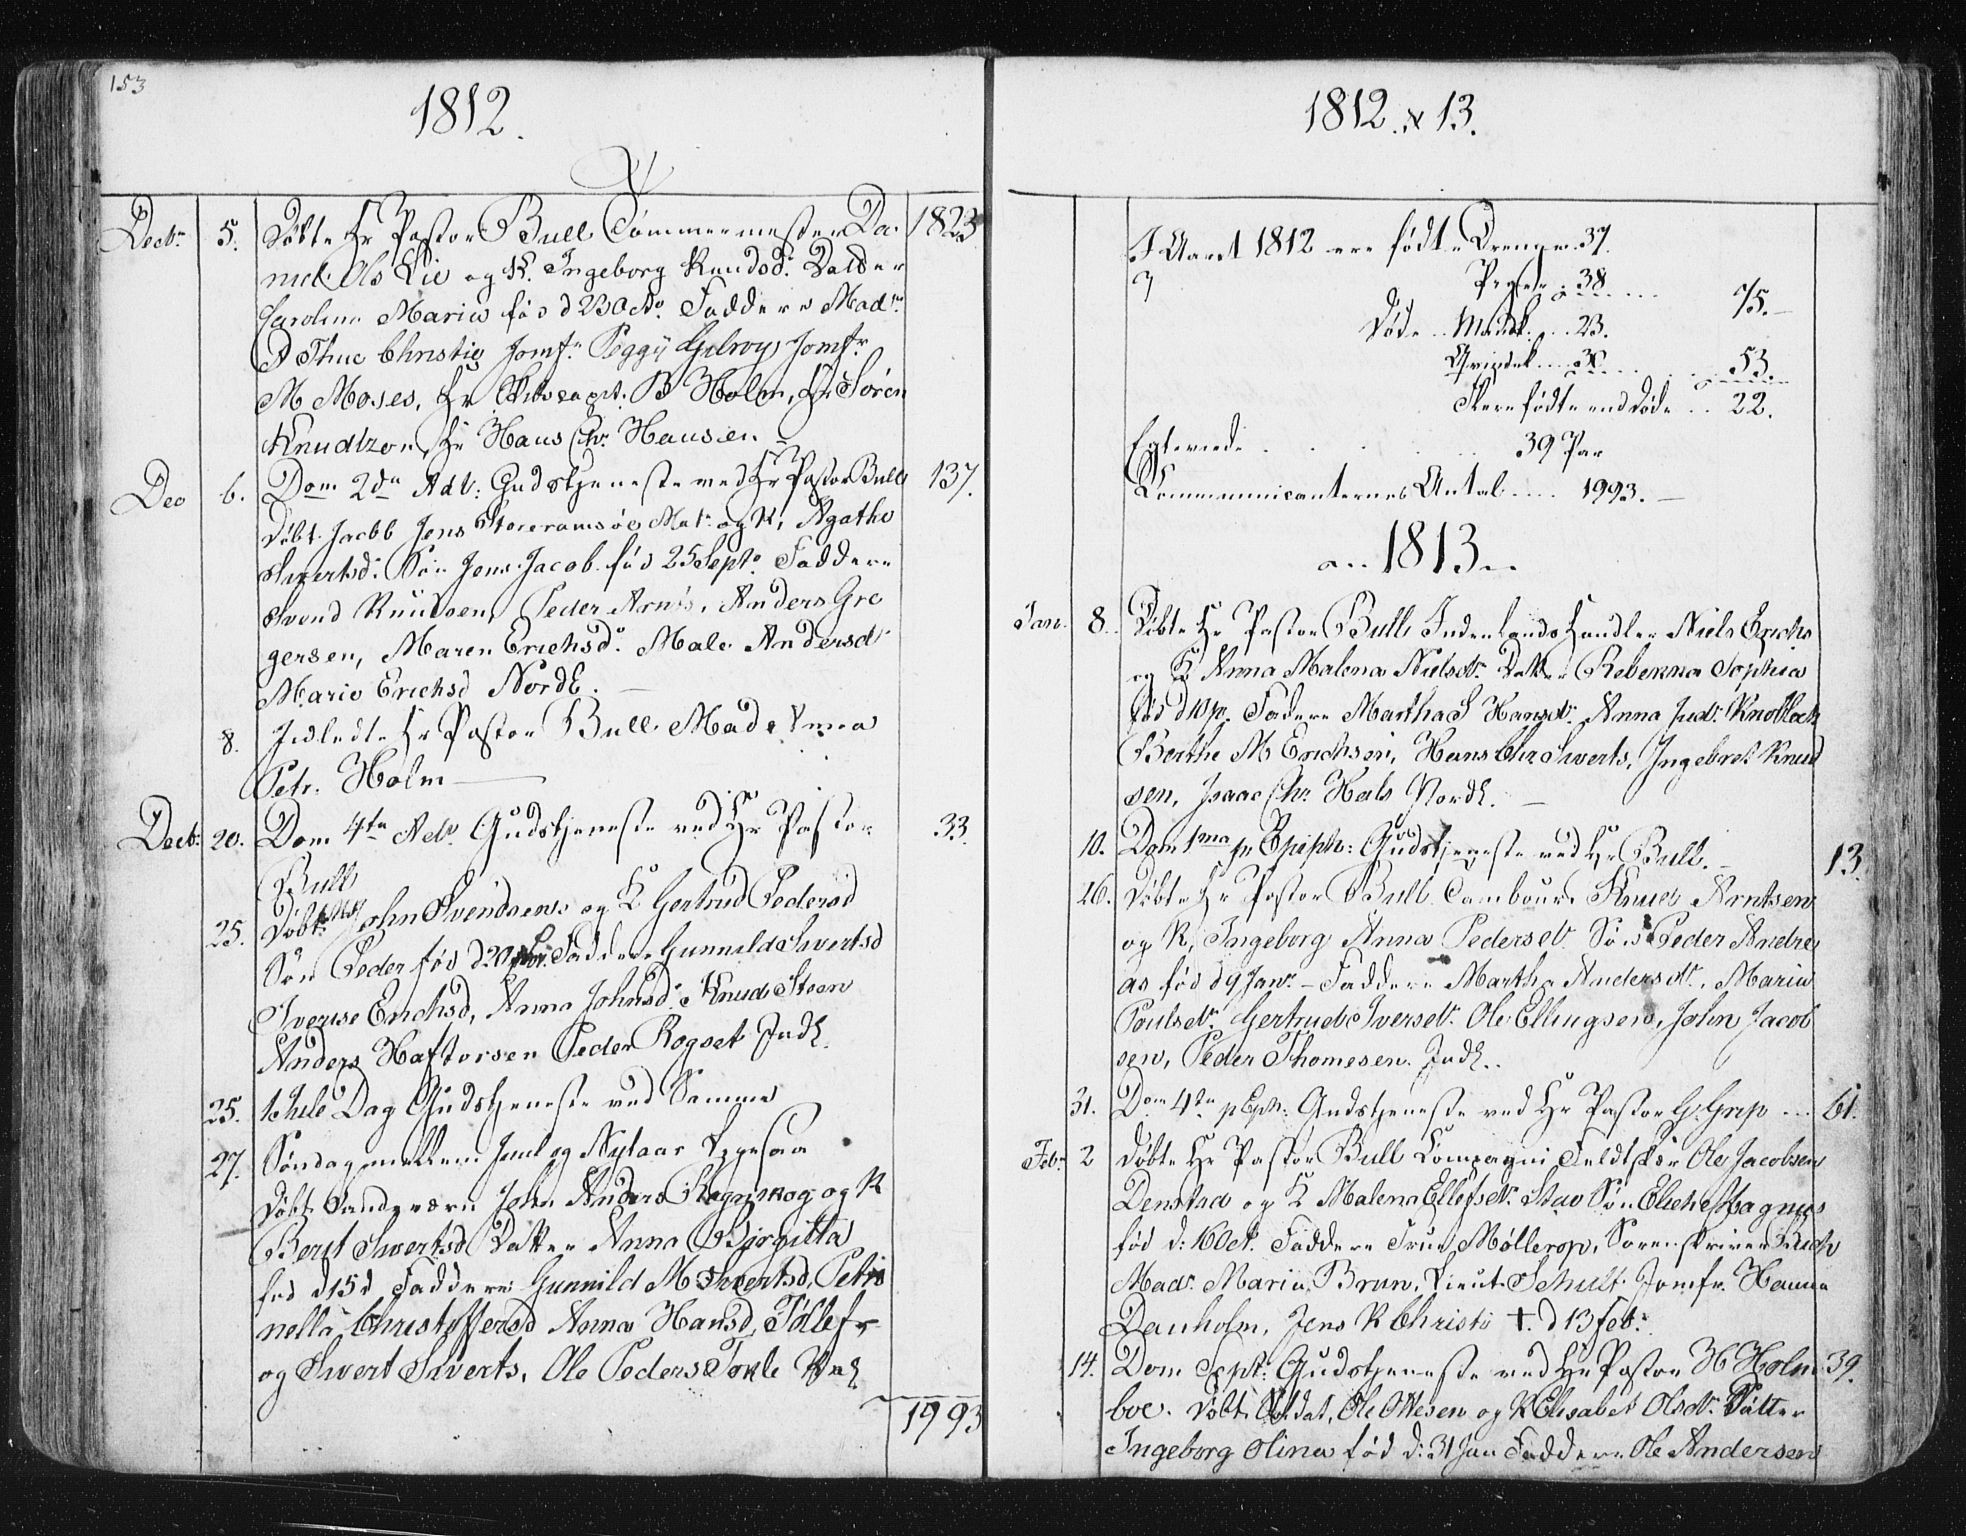 153
1812.
Decbr 5. Döbte Hr Pastor Bull Tömmermester Da- 1823
niel Ols Lie og K. Ingeborg Knudsd. Datter
Caroline Maria fød d 23 Octo. Faddere Madm.
D Thue Christie Jomfr. Peggÿ Gelroy, Jomfr.
M Moses, Hr Skibscapt. B Holm, Hr Sören
Knudtzon, Hr Hans Chr. Hansen
Dec 6. Dom 2da Adv: Gudstjeneste ved Hr Pastor Bull 137.
Döbt Jacob Jens Storeramsöe Mat. og K. Agathe
Sivertsd: Sön Jens Jacob fød 25 Septo. Faddere
Svend Knudsen, Peder Arnts, Anders Gre
gersen, Maren Erichsd. Male Andersd
Marie Erichsd Nordl.
8. Indledte Hr Pastor Bull Mad Anna
Petr. Holm
Decb: 20. Dom 4ta Adv. Gudstjeneste ved Hr Pastor 33.
Bull
25. Döbt John Svendsens og K Gertrud Pedersd
Sön Peder fød d 20 Faddere Gunnild Sivertsd
Iverine Erichsd, Anna Johnsd. Knud Steen
Anders Haftorsen Peder Rogset Indl.
25. 1 Jule Dag Gudstjeneste ved Samme
27. Söndag mellem Juul og Nytaar
Döbt John Anders og K
Berit Sivertsd Datter Anna Birgitta
fød d 15 d Faddere Gunnild M Sivertsd, Petro
nella Christoffersd Anna Hansd, Tollef
og Sivert Siverts, Ole Peders
1993
1812. & 13.
I Aaret 1812 ere födte Drenge 37.
Piger 38 75.
Döde Mandk. 23.
Qvindek 30 53.
Flere födte end Döde 22.
Egteviede 39 Par
Communicanternes Antal 1993.
1813
Jan. 8. Döbte Hr Pastor Bull Indenlands Handler Niels Erichs
og K Anna Malena Nielsdr. Datter Rebekka Sophia
fød d 10 p. Faddere Martha S Hansdr. Anna Knoblock
Berthe M Erichsen, Hans Chr Siverts, Ingebret Knud
sen, Isaac Chr. Hals Nordl.
10. Dom 1ma p Epiph: Gudstjeneste ved Hr Bull. 13.
26. Döbte Hr Pastor Bull Tambour Knud Arntsen
og K. Ingeborg Anna Pedersdr. Sön Peder Andre
as fød d 9 Janr. Faddere Martha Andersdr., Maria
Poulsdr. Gertrud Iversdr. Ole Ellingsen, John Jacob
sen, Peder Thomesen. Indl.
31. Dom 4ta p Eph: Gudstjeneste ved Hr Pastor G. Grip 61.
Febr. 2 Döbte Hr Pastor Bull Compagni Feldtskær Ole Jacobsen
Denstad og K Malena Ellefsdr. Stav Sön Magnus
fød d: 16 Oct. Faddere Frue Möllerop, Sorenskriver
Madm. Maria Brun, Lieut. Schult, Jomfr. Hanna
Danholm, Jens K Christie †. d 13 Febr.
14. Dom Sept: Gudstjeneste ved Hr Pastor H Holm 39.
boe. Döbt Soldat Ole Ottesen og K Elisabet Olsdr. Datter
Ingeborg Olina fød d: 31 Jan Faddere Ole Andersen